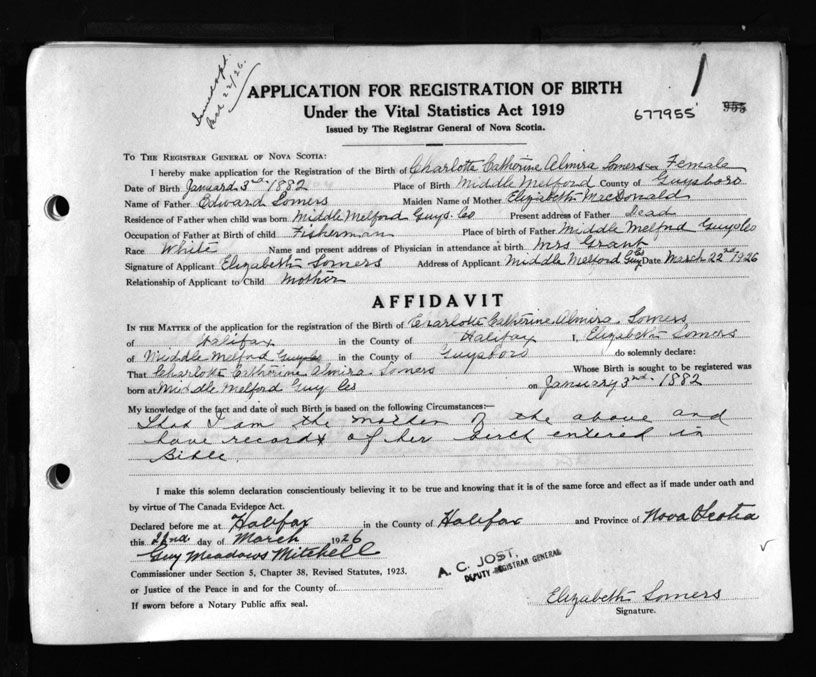 Mch 22/26.
APPLICATION FOR REGISTRATION OF BIRTH
Under the Vital Statistics Act 1919
Issued by The Registrar General of Nova Scotia.
1
677955
955
TO THE REGISTRAR GENERAL OF NOVA SCOTIA:
I hereby make application for the Registration of the Birth of Charlotte Catherine Almira Somers Female
Date of Birth January 3rd 1882 Place of Birth Middle Melford County of Guysboro
Name of Father Edward Somers Maiden Name of Mother Elizabeth MacDonald
Residence of Father when child was born Middle Melford Guys. Co Present address of Father Dead
Occupation of Father at Birth of child Fisherman Place of birth of Father Middle Melford Guys Co
Race White Name and present address of Physician in attendance at birth Mrs Grant
Signature of Applicant Elizabeth Somers Address of Applicant Middle Melford Guy Co Date March 22nd 1926
Relationship of Applicant to Child Mother
AFFIDAVIT
IN THE MATTER of the application for the registration of the Birth of Charlotte Catherine Almira Somers
of Halifax in the County of Halifax I, Elizabeth Somers
of Middle Melford Guys Co in the County of Guysboro do solemnly declare:
That Charlotte Catherine Almira Somers Whose Birth is sought to be registered was
born at Middle Melford Guy Co on January 3rd 1882
My knowledge of the fact and date of such Birth is based on the following Circumstances:—
That I am the mother of the above and
have records of her birth entered in
Bible.
I make this solemn declaration conscientiously believing it to be true and knowing that it is of the same force and effect as if made under oath and
by virtue of The Canada Evidence Act.
Declared before me at Halifax in the County of Halifax and Province of Nova Scotia
this 22nd day of March 1926
Guy Meadows Mitchell
Commissioner under Section 5, Chapter 38, Revised Statutes, 1923.
or Justice of the Peace in and for the County of
If sworn before a Notary Public affix seal.
A. C. JOST,
DEPUTY REGISTRAR GENERAL
Elizabeth Somers
Signature.